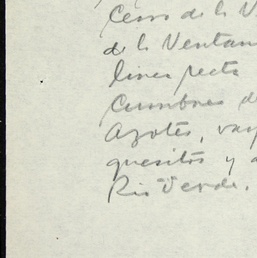 Cerro de la V
de la Ventan
linea recta
Cumbres d
Azotes, vay
quesitos y a
Rio Verde.